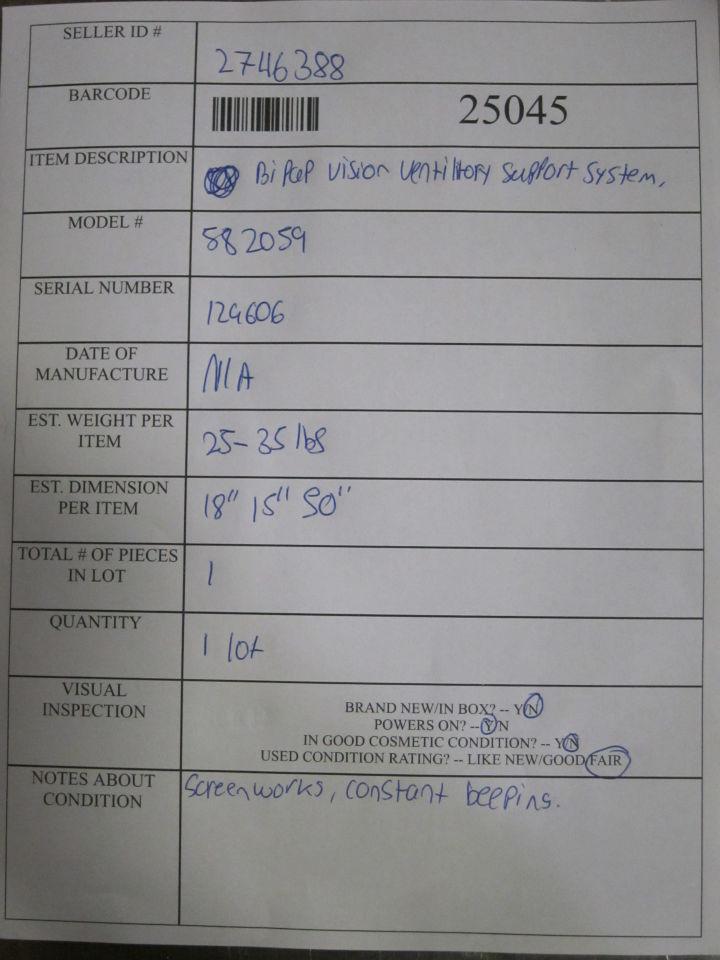 SELLER ID #
2746388
BARCODE
25045
ITEM DESCRIPTION
BiPAP Vision Ventilitory Support System.
MODEL #
582059
SERIAL NUMBER
129606
DATE OF
MANUFACTURE
N/A
EST. WEIGHT PER
ITEM
25-35 lbs
EST. DIMENSION
PER ITEM
18" 15" 50"
TOTAL # OF PIECES
IN LOT
1
QUANTITY
1 lot
VISUAL
INSPECTION
BRAND NEW/IN BOX? -- Y/N
POWERS ON? -- Y/N
IN GOOD COSMETIC CONDITION? -- Y/N
USED CONDITION RATING? -- LIKE NEW/GOOD/FAIR
NOTES ABOUT
CONDITION
Screen works, constant beeping.